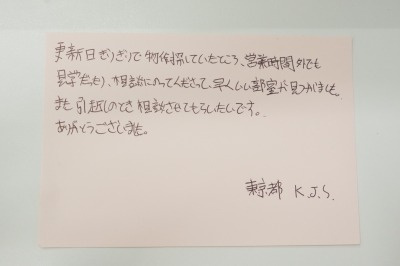 更新日ぎりぎりで物件探していたところ、営業時間外でも
見学だったり、相談にのってくださって、早くいい部屋が見つかりました。
また引越しのとき相談させてもらいたいです。
ありがとうございました。
東京都 K.J.S.